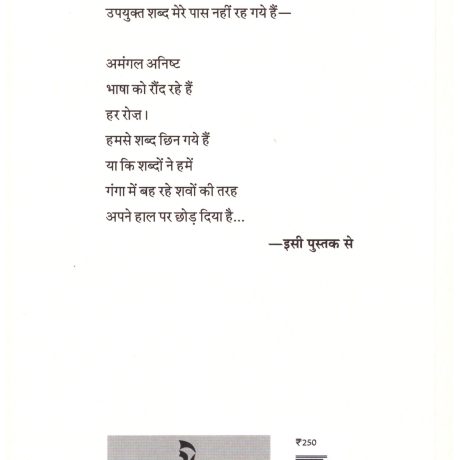 उपयुक्त शब्द मेरे पास नहीं रह गये हैं—
अमंगल अनिष्ट
भाषा को रौंद रहे हैं
हर रोज़।
हमसे शब्द छिन गये हैं
या कि शब्दों ने हमें
गंगा में बह रहे शवों की तरह
अपने हाल पर छोड़ दिया है...
—इसी पुस्तक से
₹250